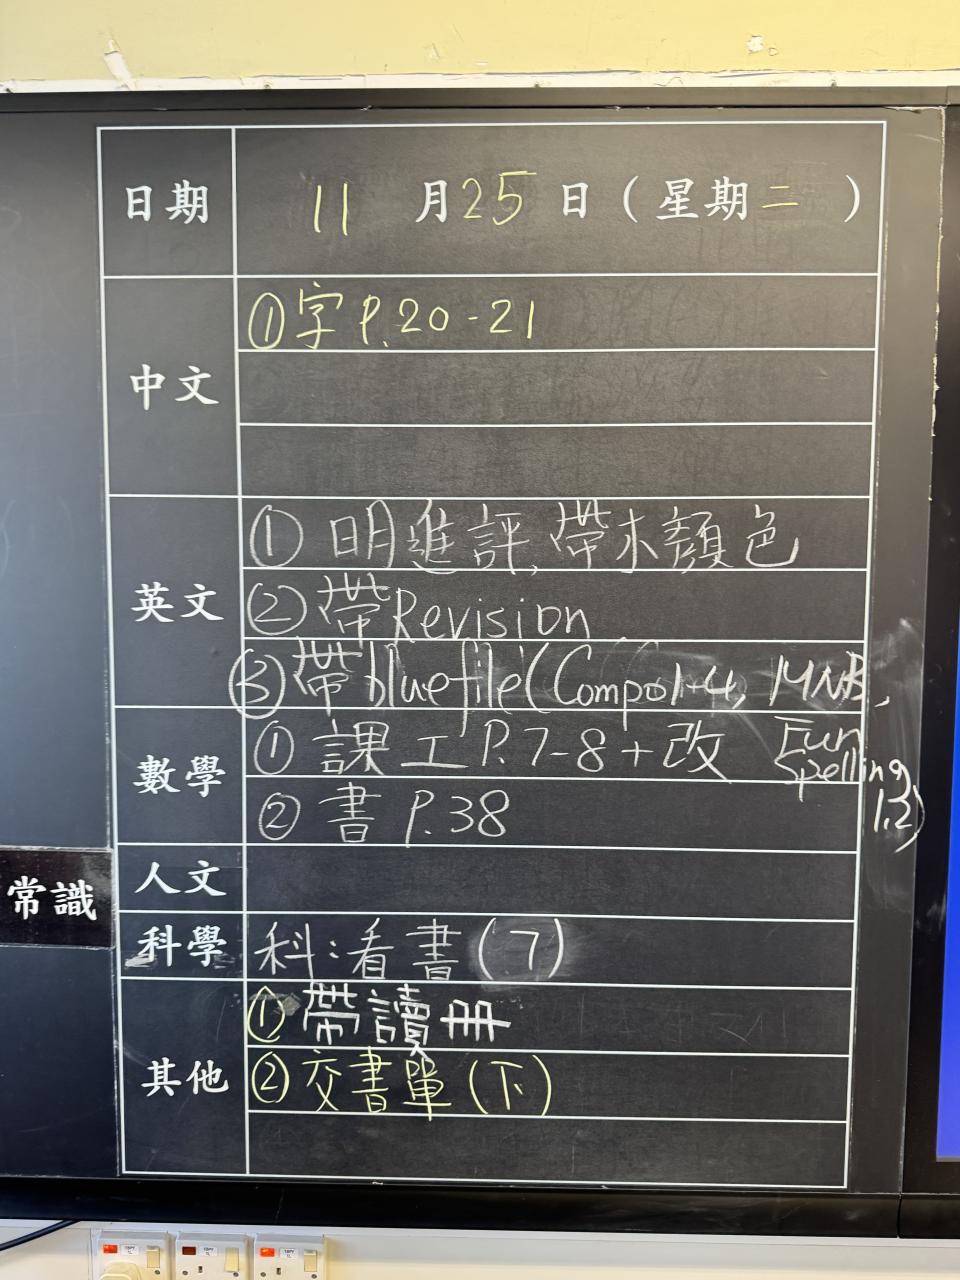 日期 11 月 25 日 ( 星期 二 )
中文
①字 P.20-21
英文
① 明進評, 帶木顏色
② 帶Revision
③ 帶bluefile(Compo1+4, MNB,
Fun
Spelling
1,2)
數學
① 課工 P.7-8+改
② 書 P.38
人文
常識
科學
科:看書(7)
其他
① 帶讀冊
② 交書單(下)